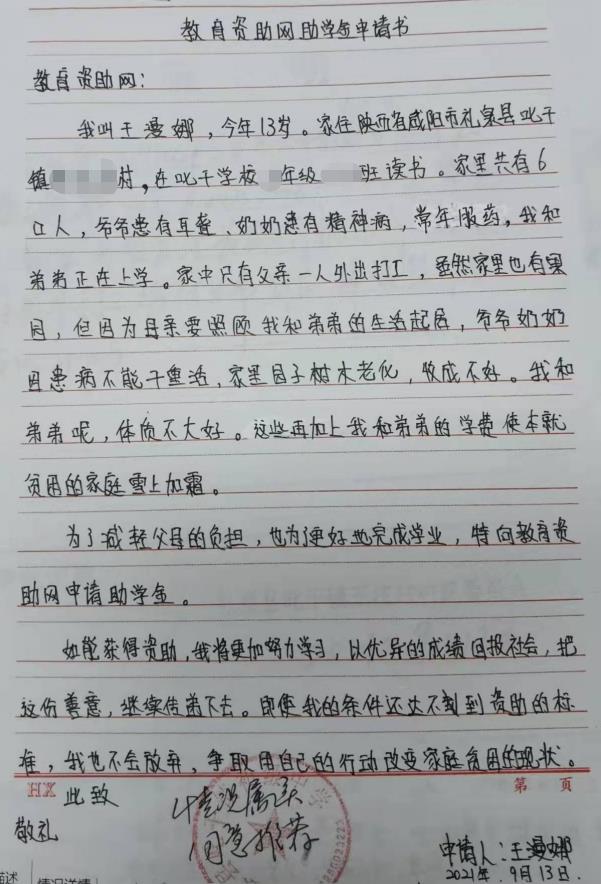 教育资助网助学金申请书
教育资助网：
我叫王漫娜，今年13岁。家住陕西省咸阳市礼泉县叱干
镇 村，在叱干学校 年级 班读书。家里共有6
口人，爷爷患有耳聋、奶奶患有精神病，常年服药。我和
弟弟正在上学。家中只有父亲一人外出打工，虽然家里也有果
园，但因为母亲要照顾我和弟弟的生活起居，爷爷奶奶
因患病不能干重活，家里园子树木老化，收成不好。我和
弟弟呢，体质不大好。这些再加上我和弟弟的学费使本就
贫困的家庭雪上加霜。
为了减轻父母的负担，也为了更好地完成学业，特向教育资
助网申请助学金。
如能获得资助，我将更加努力学习，以优异的成绩回报社会，把
这份善意，继续传递下去。即使我的条件还达不到到资助的标
准，我也不会放弃，争取用自己的行动改变家庭贫困的现状。
HX 此致 第 页
敬礼
情况属实
同意推荐
申请人：王漫娜
2021年9月13日.
描述 情况详情